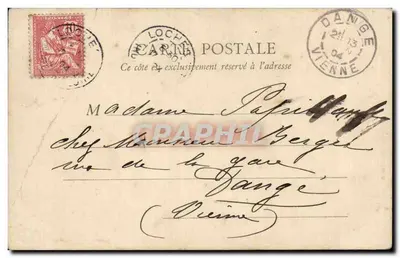 LOCHES
DANGE
VIENNE
CARTE POSTALE
Ce côté est exclusivement réservé à l'adresse
Madame
chez Monsieur Berger
de la gare
Dangé
(Vienne)